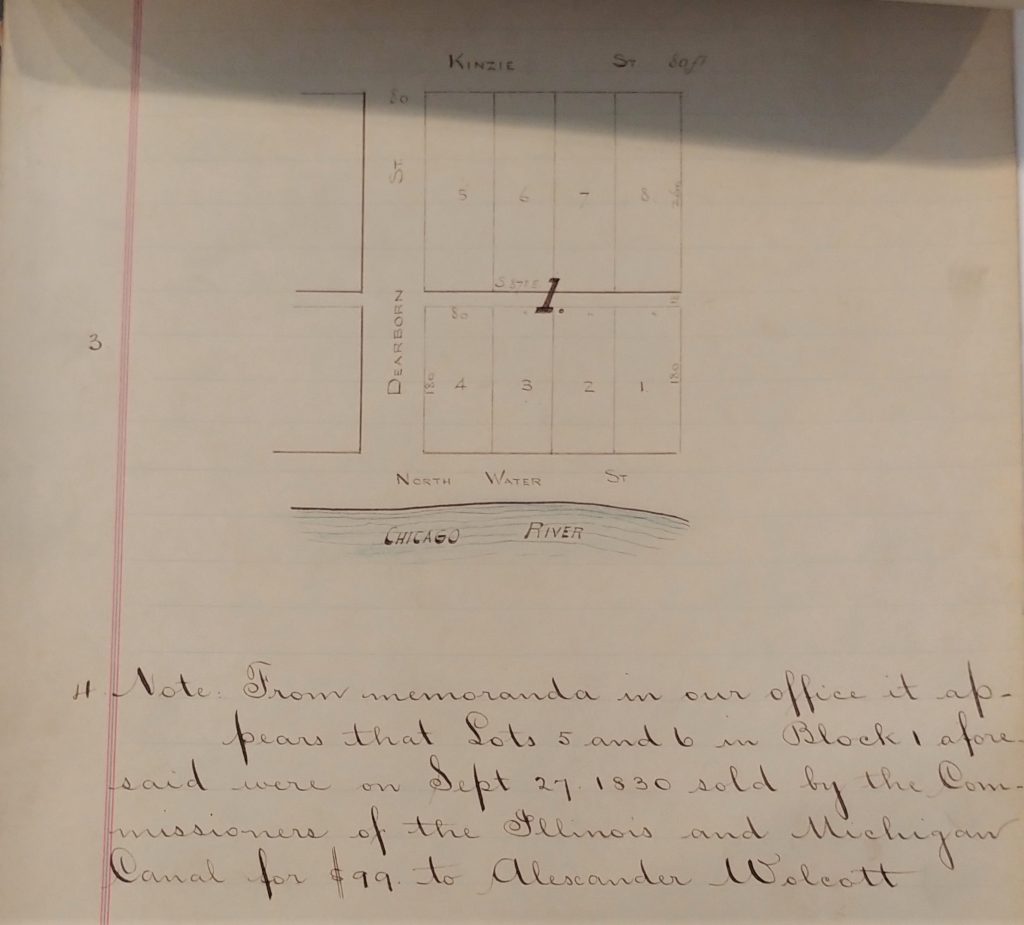 KINZIE ST 80 ft
80
ST
5 6 7 8
1.
18
3
DEARBORN
80 " " "
180 4 3 2 1 180
NORTH WATER ST
CHICAGO RIVER
4 Note: From memoranda in our office it ap-
pears that Lots 5 and 6 in Block 1 afore-
said were on Sept 27. 1830 sold by the Com-
missioners of the Illinois and Michigan
Canal for $99. to Alexander Wolcott